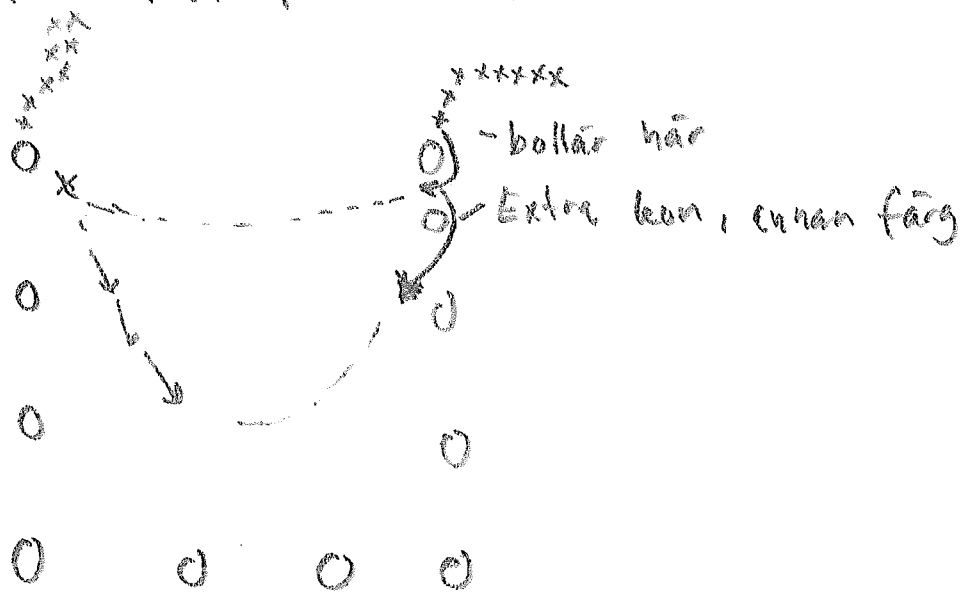 - bollar här
Extra kon, annan färg